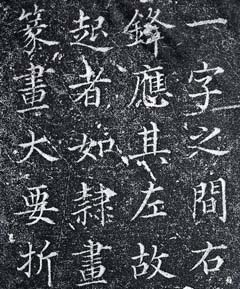 一字之間右
鋒應其左故
起者如隸畫
篆畫大要折